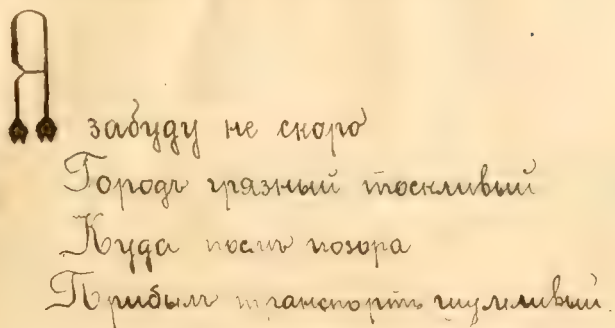 Я забуду не скоро
Городъ грязный тоскливый
Куда послѣ позора
Прибылъ транспортъ шумливый